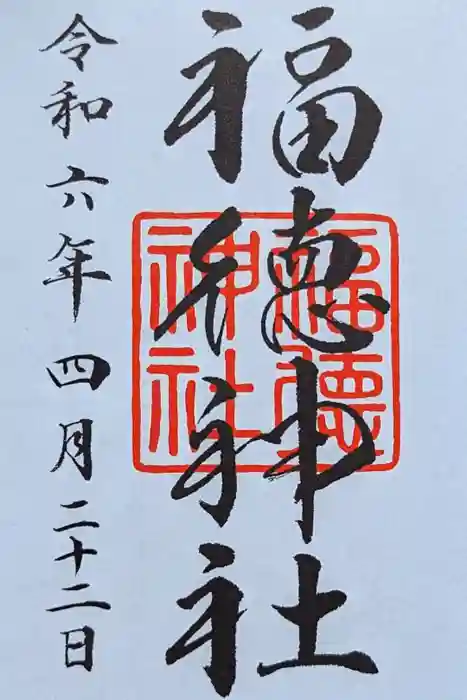 福徳神社
福德神社
令和六年四月二十二日